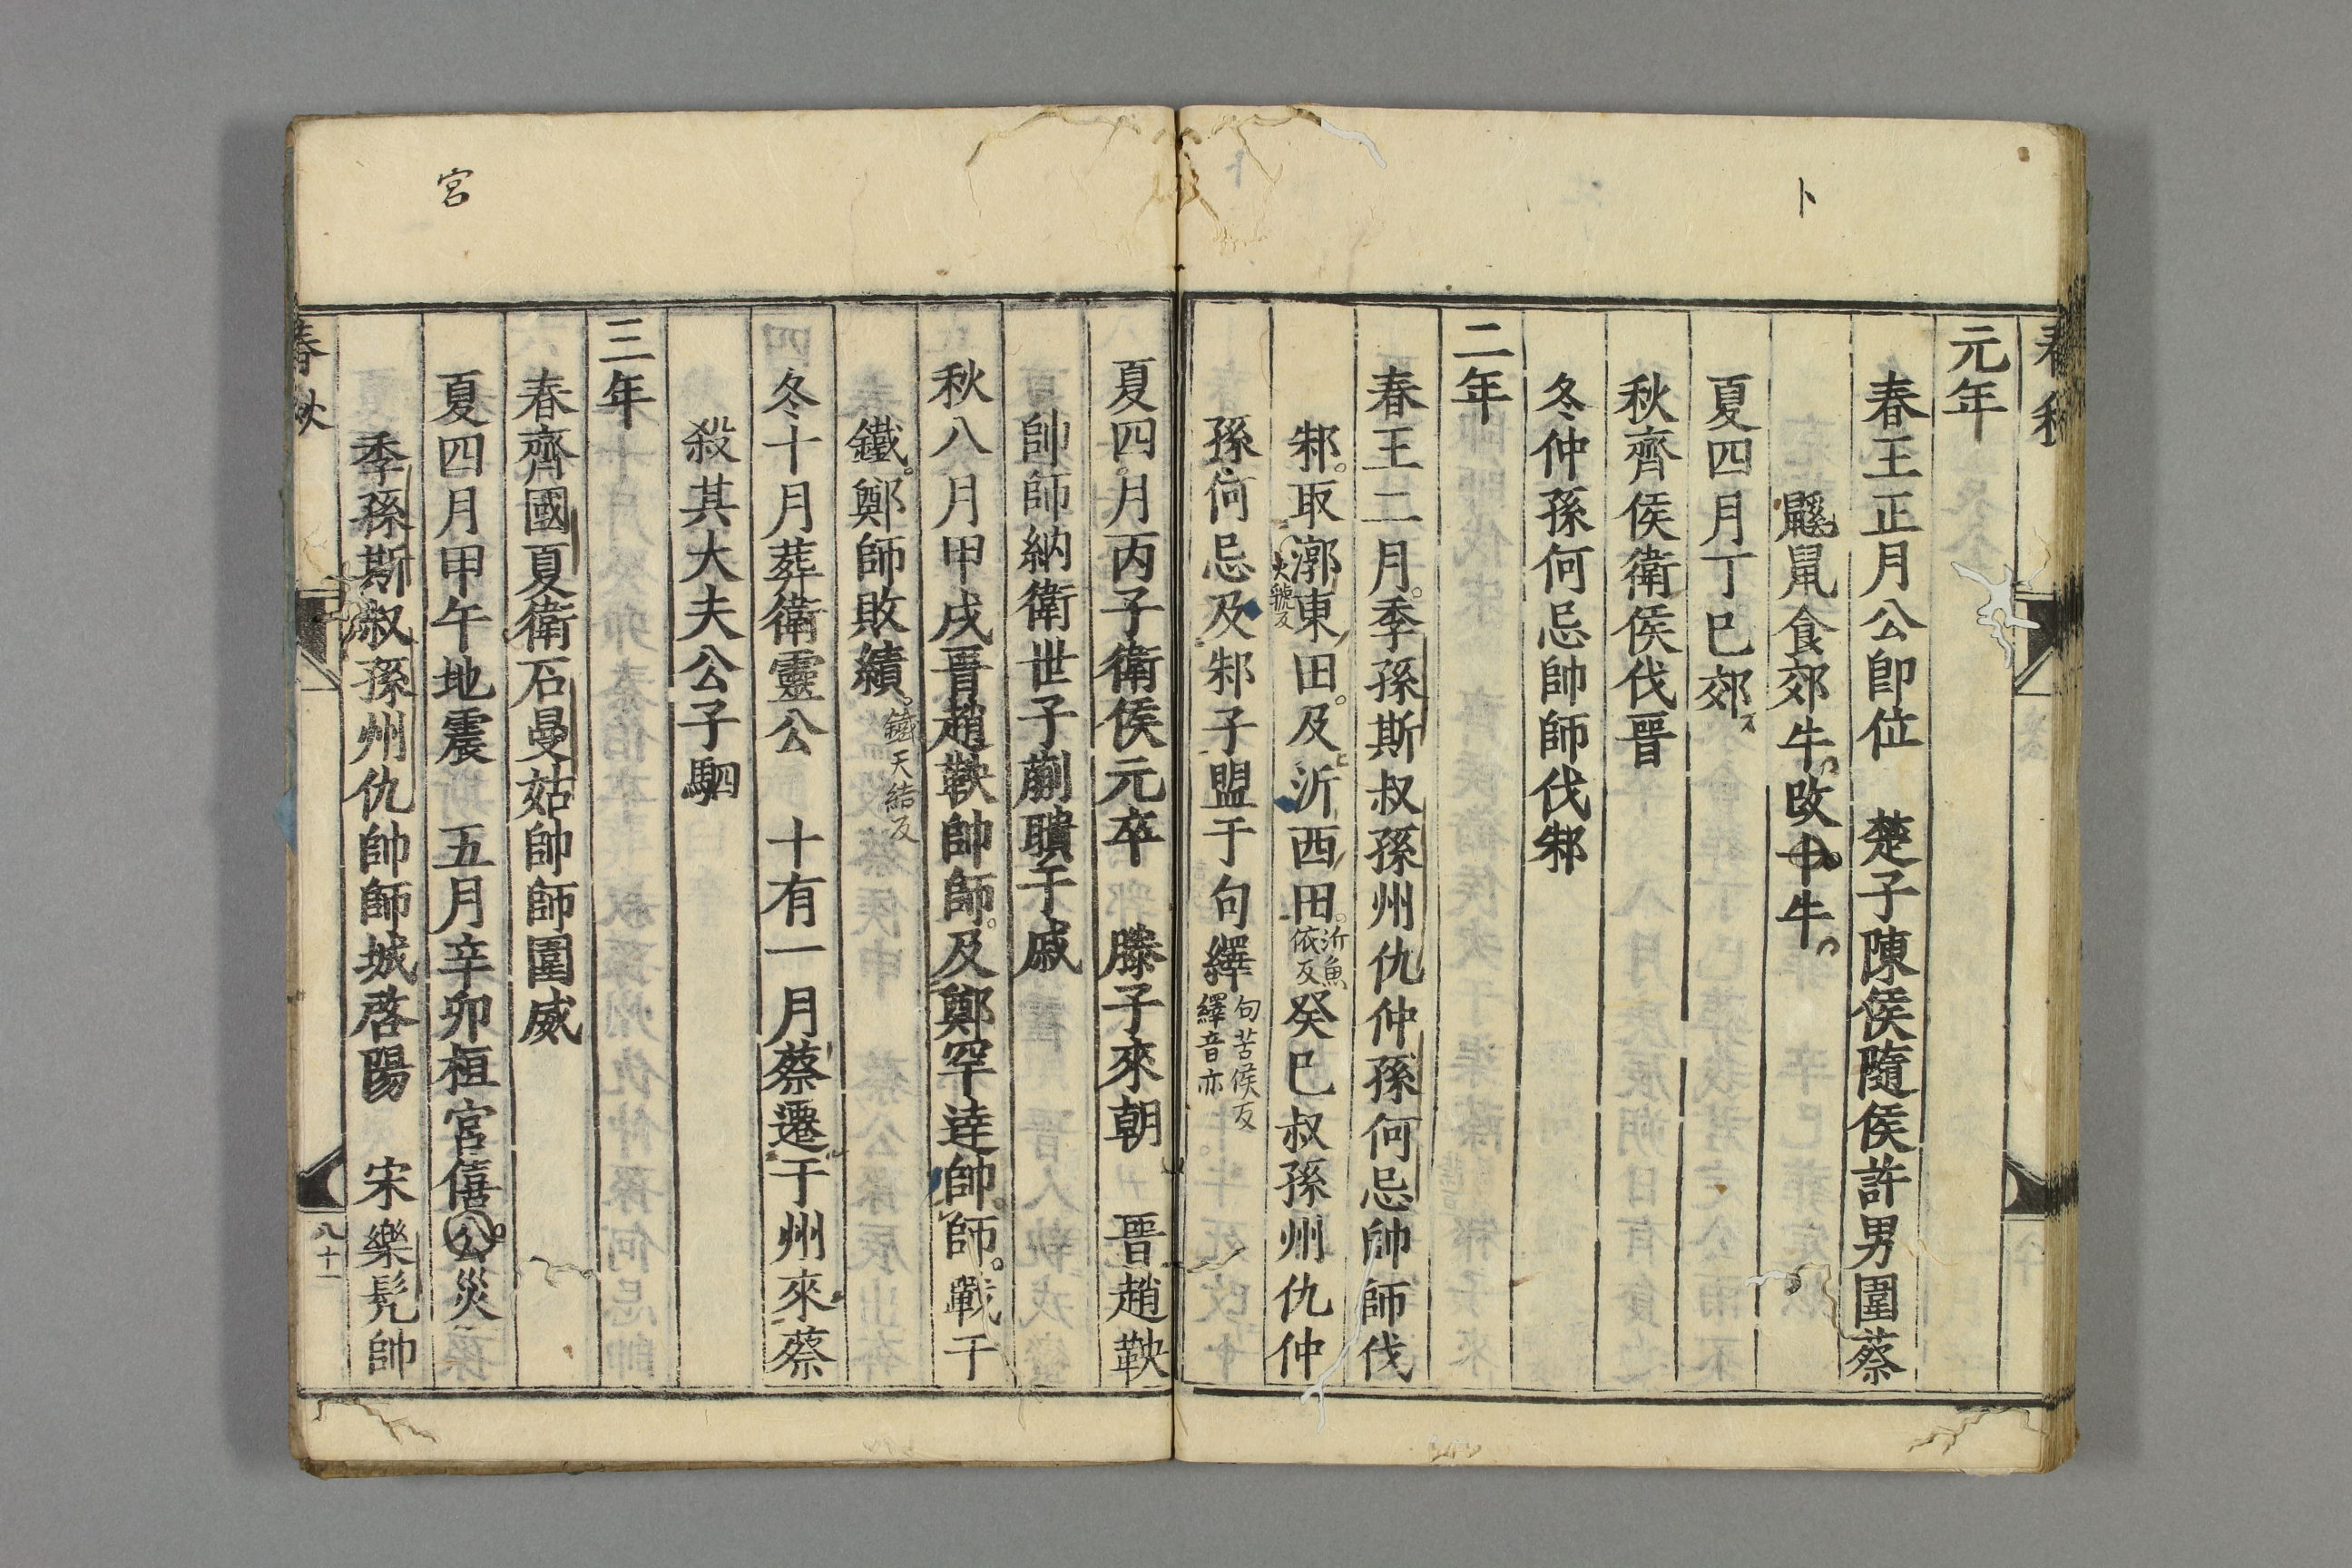 卜
春秋
元年
春王正月公即位　楚子陳侯隨侯許男圍蔡
鼷鼠食郊牛改十牛
夏四月丁巳郊
秋齊侯衛侯伐晉
冬仲孫何忌帥師伐邾
二年
春王二月季孫斯叔孫州仇仲孫何忌帥師伐
邾取漷東田及沂西田沂魚依反癸巳叔孫州仇仲
火虢反
孫何忌及邾子盟于句繹句苦侯反繹音亦
夏四月丙子衛侯元卒　滕子來朝　晉趙鞅
帥師納衛世子蒯聵于戚
秋八月甲戌晉趙鞅帥師及鄭罕逹帥師戰于
鐵鄭師敗績鐵天結反
冬十月葬衛靈公　十有一月蔡遷于州來蔡
殺其大夫公子駟
三年
春齊國夏衛石曼姑帥師圍戚
宮
夏四月甲午地震　五月辛卯桓宮僖公災
季孫斯叔孫州仇帥師城啓陽　宋樂髠帥
春秋
八十一